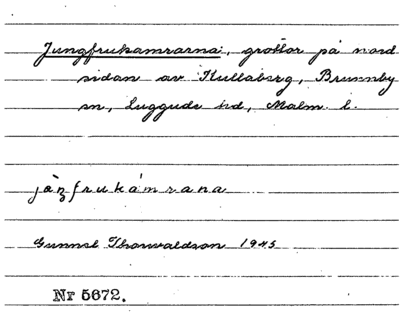 Jungfrukamrarna, grottor på nord
sidan av Kullaberg, Brunnby
sn, Luggude hd, Malm. l.
jàŋfrukámrana
Gunnel Thorvaldson 1945
Nr 5672.